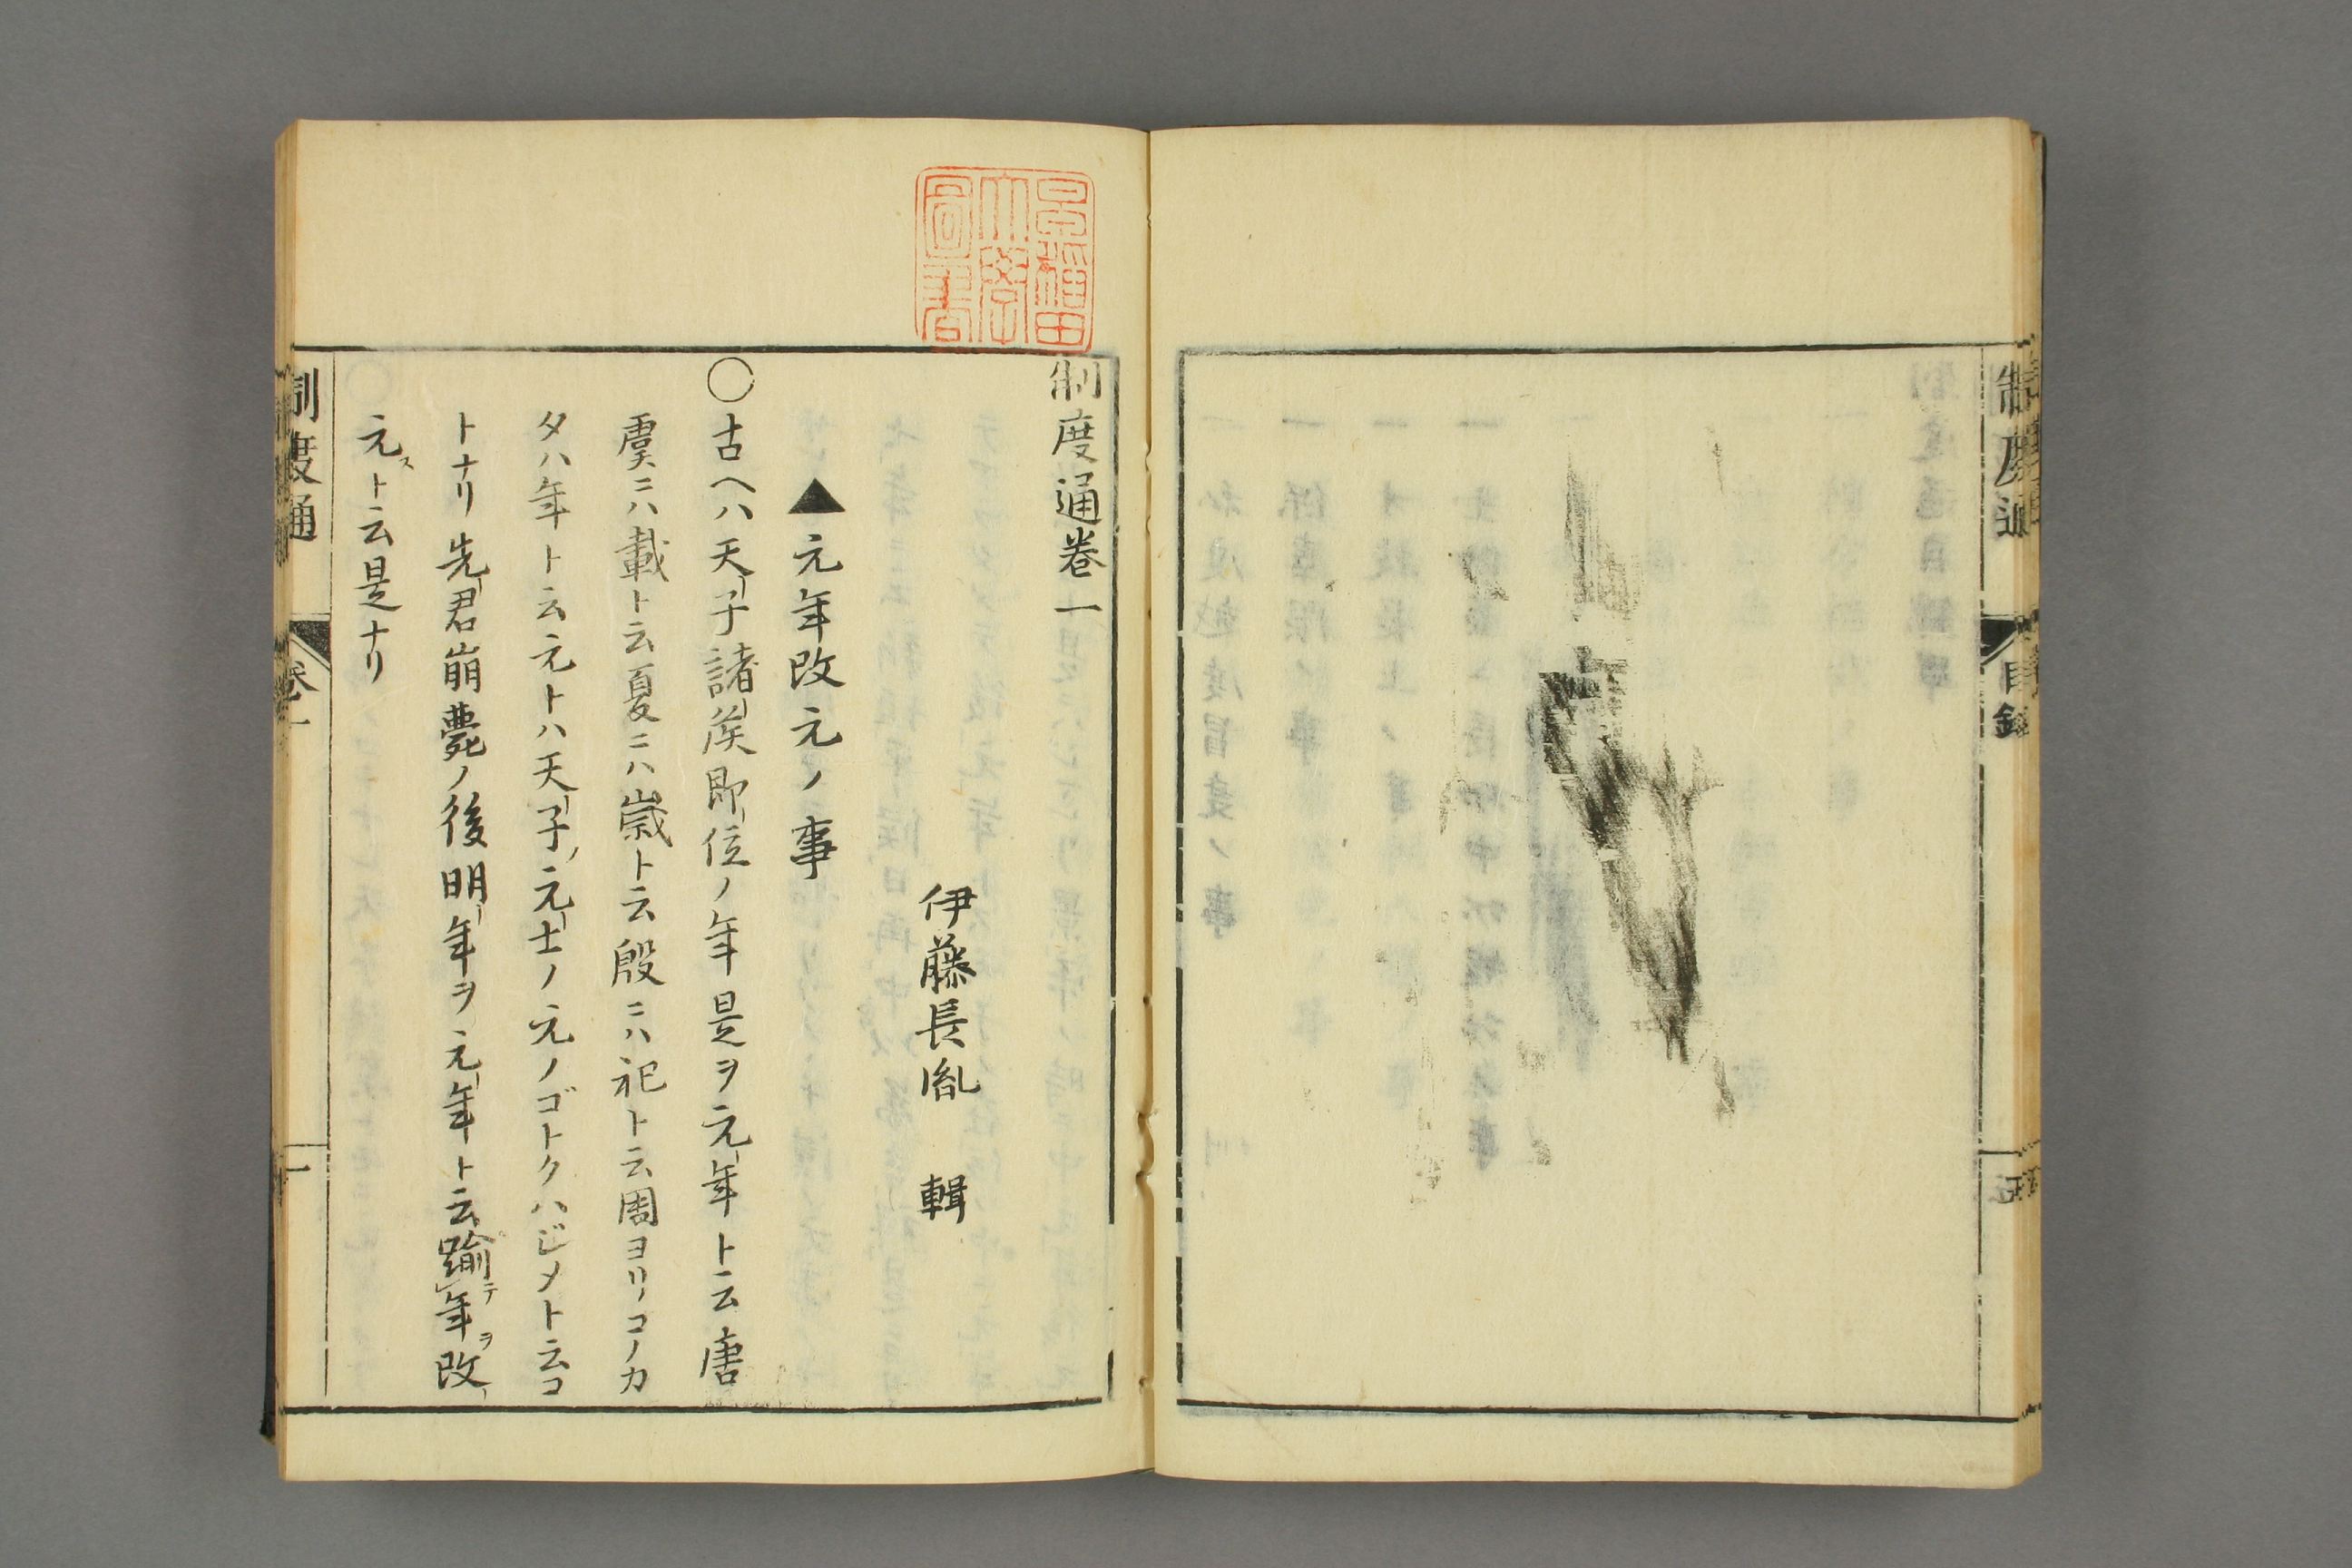 制度通
目録
五
早稲田
大学
図書
制度通巻一
伊藤長胤 輯
▲元年改元ノ事
○古ヘハ天子諸侯即位ノ年是ヲ元年ト云唐
虞ニハ載ト云夏ニハ歳ト云殷ニハ祀ト云周ヨリコノカ
タハ年ト云元トハ天子ノ元士ノ元ノゴトクハジメト云コ
トナリ先君崩薨ノ後明年ヲ元年ト云踰テ年ヲ改
元スト云是ナリ
制度通
巻一
一